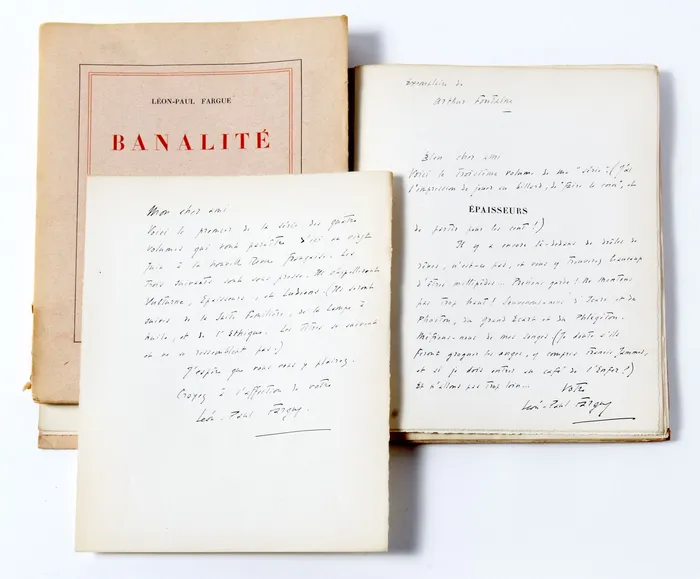 LÉON-PAUL FARGUE
BANALITÉ
Mon cher ami
Voici le premier de la série des quatre
volumes qui vont paraître d'ici au vingt
juin à la nouvelle Revue française. Les
trois suivants sont sous presse. Ils s'appelleront
Vulturne, Epaisseurs, et Ludions. (Ils seront
suivis de la Suite Familière, de la Lampe à
huile, et de l'Ethique. Les titres se suivent
et ne se ressemblent pas.)
J'espère que vous vous y plairez.
Croyez à l'affection de votre
Léon-Paul Fargue.
Exemplaire de
Arthur Fontaine
Bien cher ami
Voici le troisième volume de ma "série" (J'ai
l'impression de jouer au billard, de "faire le coin", et
ÉPAISSEURS
de partir pour les cent!)
Il y a encore là-dedans de drôles de
rêves, n'est-ce pas, et vous y trouverez beaucoup
d'êtres millipèdes... Prenons garde! Ne montons
pas trop haut! Souvenons-nous d'Icare et de
Phaéton, du grand Ecart et du Phlégéton.
Méfions-nous de nos songes (Je doute s'ils
feront grogner les anges, y compris Francis Jammes,
et si je dois entrer au café de l'Enfer!)
Et n'allons pas trop loin...
Votre
Léon-Paul Fargue